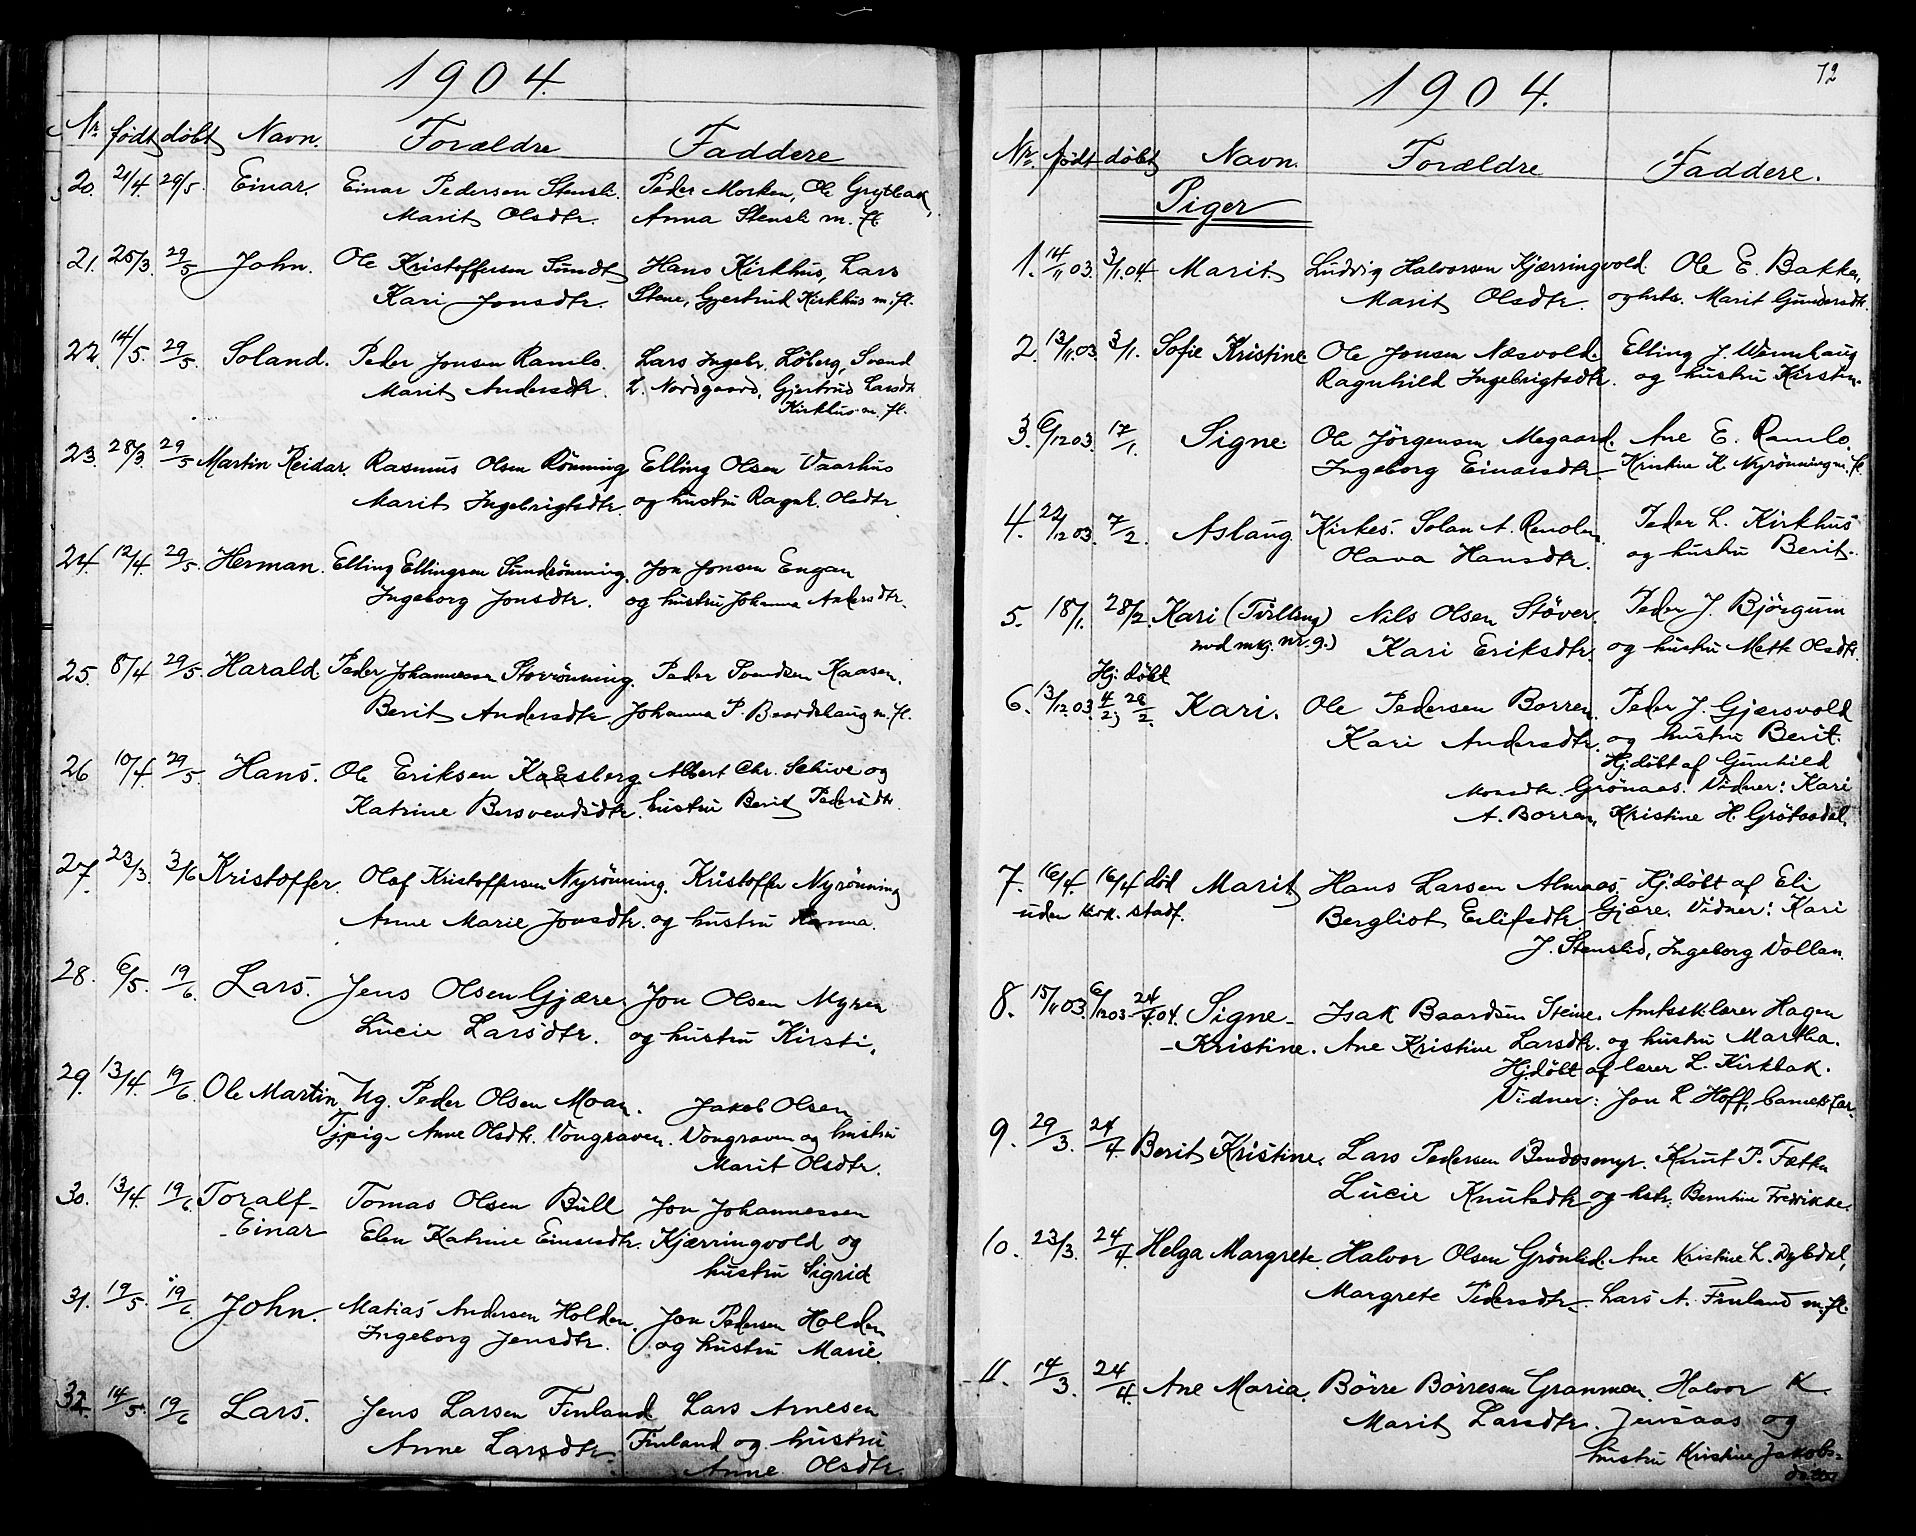 1904.
Nr. født døbt Navn. Forældre Faddere
20. 21/4 29/5. Einar. Einar Pedersen Stensli. Peder Morken, Ole Grytbak,
Marit Olsdtr. Anna Stensli m. fl.
21. 25/3. 29/5 John. Ole Kristoffersen Sundt Hans Kirkhus, Lars
Kari Jonsdtr. Stene, Gjertrud Kirkhus m. fl.
22. 14/5. 29/5. Soland. Peder Jonsen Ramlo. Lars Ingebr. Löberg, Svend
Marit Andersdtr. L. Nordgaard, Gjertrud Larsdtr
Kirkhus m. fl.
23. 28/3. 29/5 Martin Reidar. Rasmus Olsen Rönning Elling Olsen Vaarhus
Marit Ingebrigtsdtr. og hustru Ragnh. Olsdtr.
24. 12/4. 29/5. Herman. Elling Ellingsen Sundrönning. Jon Jonsen Engan
Ingeborg Jonsdtr. og hustru Johanna Andersdtr.
25. 8/4 29/5. Harald. Peder Johannessen Storrönning. Peder Svendsen Kaasen.
Berit Andersdtr. Johanna P. Baardshaug m. fl.
26 10/4 29/5. Hans. Ole Eriksen Kaasberg Albert Chr. Schive og
Katrine Bersvendsdtr. hustru Berit Pedersdtr.
27. 23/3. 3/6 Kristoffer. Olaf Kristoffersen Nyrönning. Kristoffer Nyrönning
Anne Marie Jonsdtr. og hustru Hanna.
28. 6/5. 19/6. Lars. Jens Olsen Gjære. Jon Olsen Myren
Lucie Larsdtr. og hustru Kirsti.
29. 13/4. 19/6. Ole Martin Ug. Peder Olsen Moan. Jakob Olsen
Tjpig. Anne Olsdtr. Vongraven. Vongraven og hustru
Marit Olsdtr.
30. 13/4. 19/6. Toralf- Tomas Olsen Bull Jon Johannessen
-Einar Elen Katrine Einarsdtr. Kjærringvold og
hustru Sigrid
31. 19/5. 19/6. John. Matias Andersen Holden. Jon Pedersen Holden
Ingeborg Jensdtr. og hustru Marie.
32. 14/5. 19/6 Lars. Jens Larsen Finland Lars Arnesen
Anne Larsdtr. Finland og hustru
Anne Olsdtr.
72
1904.
Nr. født døbt Navn. Forældre Faddere.
Piger
1. 14/11 03. 3/1.04. Marit Ludvig Halvorsen Kjærringvold. Ole E. Bakken,
Marit Olsdtr. og hstr. Marit Gundersdtr.
2. 13/11.03. 3/1. Sofie Kristine. Ole Jonsen Næsvold. Elling J. Warmhaug
Ragnhild Ingebrigtsdtr. og hustru Kirsten.
3. 6/12 03. 17/1. Signe. Ole Jörgensen Megaard. Ane E. Ramlo.
Ingeborg Einarsdtr. Kristine K. Nyrönning m. fl.
4. 22/12 03. 7/2. Aslaug Kirkes. Solan A. Renolen. Peder L. Kirkhus
Olava Hansdtr. og hustru Berit.
5. 18/1. 28/2. Kari (Tvilling) Nils Olsen Stöver. Peder J. Björgum
med mkj. nr. 9.) Kari Eriksdtr. og hustru Mette Olsdtr.
Hj. døbt
6. 13/12.03. 4/2; 28/2. Kari. Ole Pedersen Borren. Peder J. Gjærsvold
Kari Andersdtr. og hustru Berit.
Hjdöbt af Gunhild
Monsdtr. Grönaas. Vidner: Kari
A. Borren, Kristine H. Grötaadal.
7. 16/4. 16/4 død Marit Hans Larsen Almaas. Hj.døbt af Eli
uden kirk. stadf. Bergliot Eilifsdtr. Gjære. Vidner: Kari
J. Stenslid, Ingeborg Vollan.
8. 15/11 03. 6/12 03- 24/4.04. Signe- Isak Baardsen Steine. Amtssk.lærer Hagen
-Kristine. Ane Kristine Larsdtr. og hustru Martha.
Hjdöbt af lærer L. Kirkbak.
Vidner: Jon L. Hoff, barnets far.
9. 29/3. 24/4. Berit Kristine. Lars Pedersen Bendosmyr. Knut P. Fætten
Lucie Knutsdtr. og hstr. Berntine Fredrikke.
10. 23/3. 24/4. Helga Margrete. Halvor Olsen Grönlid. Ane Kristine L. Dybdal,
Margrete Pedersdtr. Lars A. Finland m. fl.
11. 14/3. 24/4. Ane Maria. Börre Börresen Granmoen. Halvor K.
Marit Larsdtr. Jensaas og
hustru Kristine Jakobs-
datter